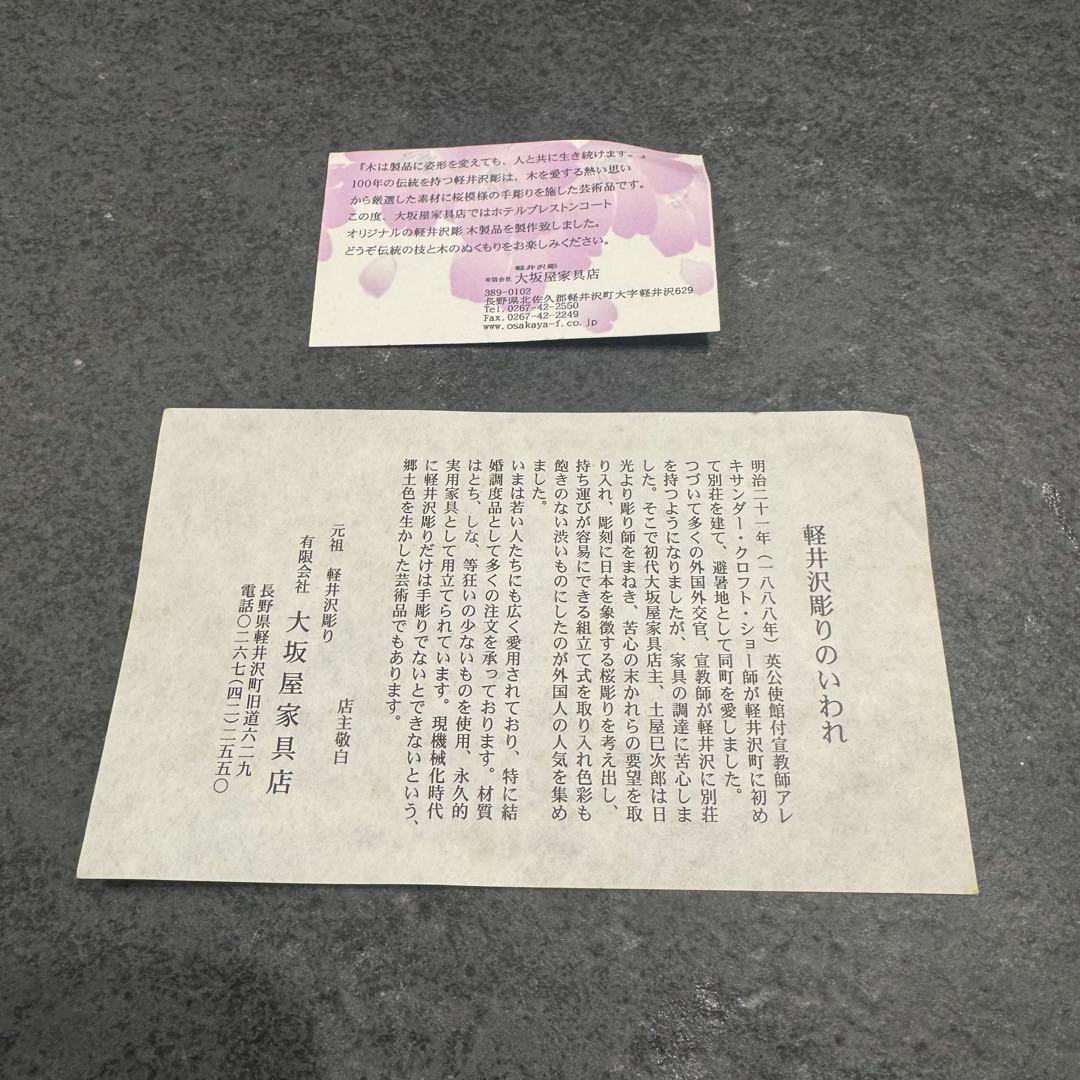 『木は製品に姿形を変えても、人と共に生き続けます。』
100年の伝統を持つ軽井沢彫は、木を愛する熱い思い
から厳選した素材に桜模様の手彫りを施した芸術品です。
この度、大坂屋家具店ではホテルブレストンコート
オリジナルの軽井沢彫 木製品を製作致しました。
どうぞ伝統の枝と木のぬくもりをお楽しみください。
軽井沢彫
有限会社 大坂屋家具店
389-0102
長野県北佐久郡軽井沢町大字軽井沢629
Tel.0267-42-2550
Fax.0267-42-2249
www.osakaya-f.co.jp
軽井沢彫りのいわれ
明治二十一年（一八八八年）英公使館付宣教師アレ
キサンダー・クロフト・ショー師が軽井沢町に初め
て別荘を建て、避暑地として同町を愛しました。
つづいて多くの外国外交官、宣教師が軽井沢に別荘
を持つようになりましたが、家具の調達に苦心しま
した。そこで初代大坂屋家具店主、土屋巳次郎は日
光より彫り師をまねき、苦心の末かれらの要望を取
り入れ、彫刻に日本を象徴する桜彫りを考え出し、
持ち運びが容易にできる組立て式を取り入れ色彩も
飽きのない渋いものにしたのが外国人の人気を集め
ました。
いまは若い人たちにも広く愛用されており、特に結
婚調度品として多くの注文を承っております。材質
はとち、しな、等狂いの少ないものを使用、永久的
実用家具として用立てられています。現機械化時代
に軽井沢彫りだけは手彫りでないとできないという、
郷土色を生かした芸術品でもあります。
店主敬白
元祖 軽井沢彫り
有限会社 大坂屋家具店
長野県軽井沢町旧道六二九
電話〇二六七(四二)二五五〇